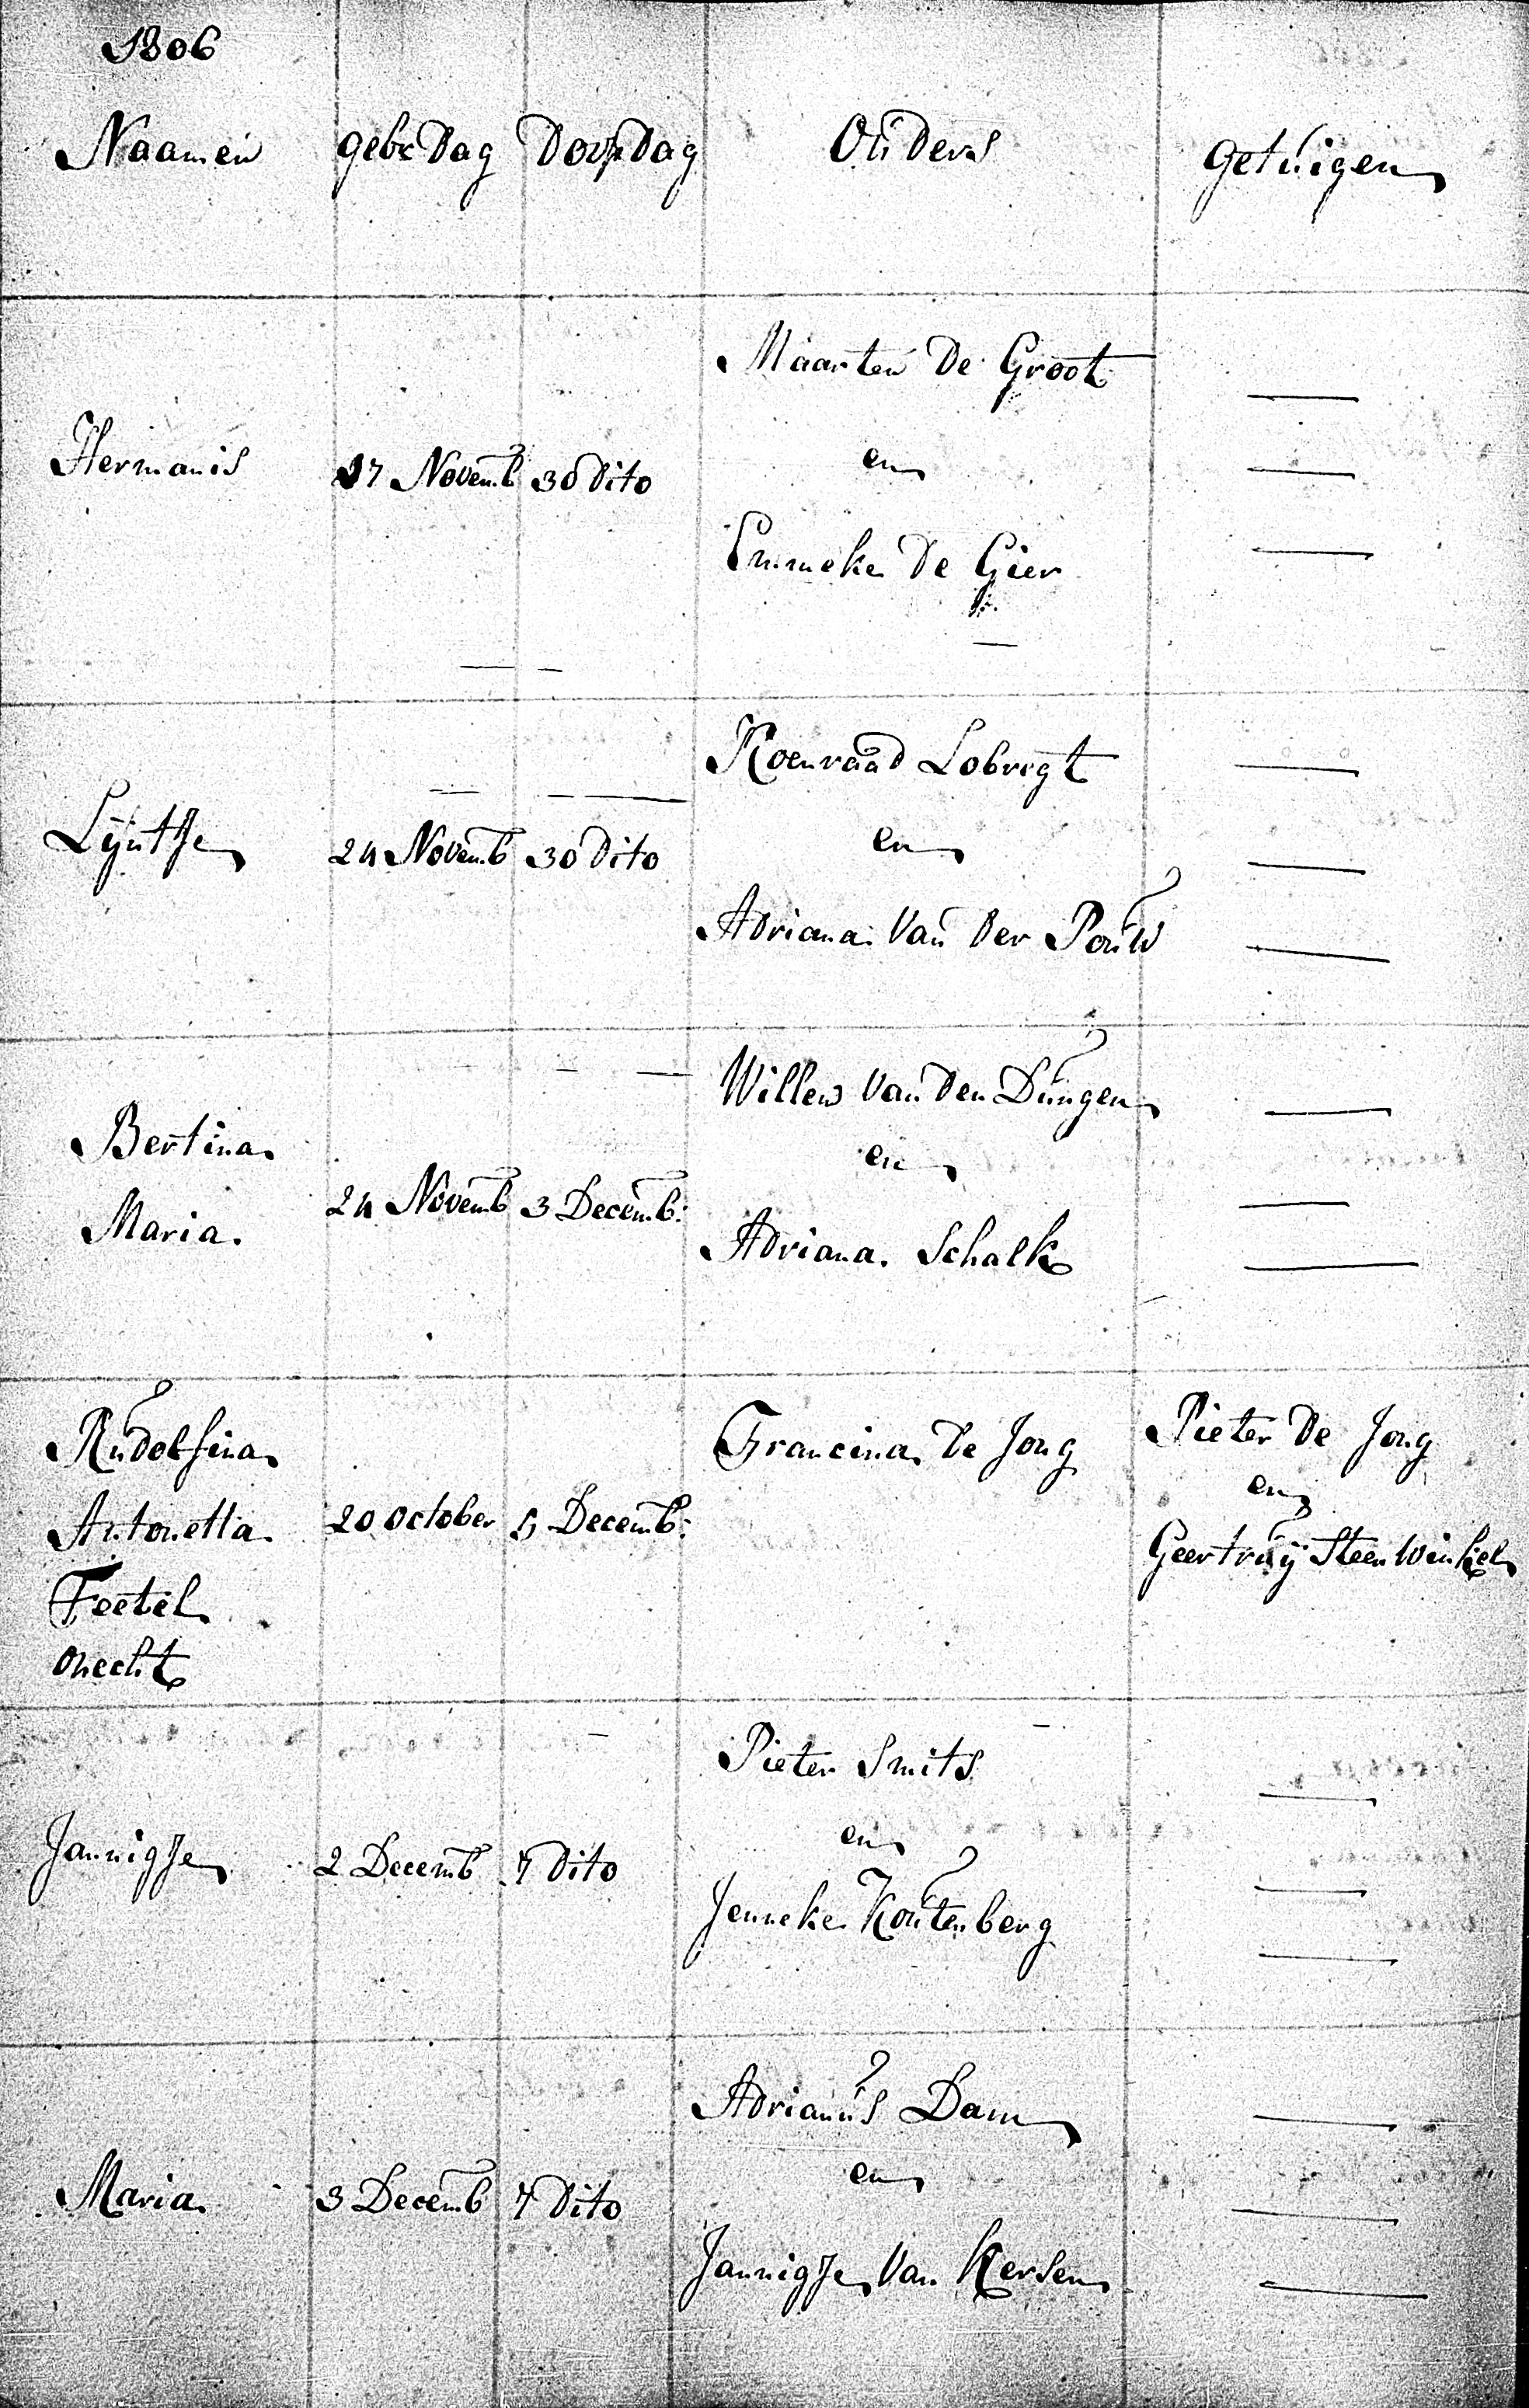 1806
Naamen gebr Dag Doopdag Ouders Getuigen
Maarten De Groot
Hermanis 27 Novemb 30 Dito en
Emmeke De Gier
Koenraad Lobregt
Lijntje 24 Novemb 30 Dito en
Adriana Van Der Pouw
Willem Van Den Dungen
Bertina en
Maria. 24 Novemb 3 Decemb:
Adriana. Schalk
Rudolfina Francina De Jong Pieter De Jong
en
Antonetta 20 October 5 Decemb: Geertruij Steen Winkel
Feetel
onecht
Pieter Smits
Jannigje 2 Decemb 7 Dito en
Jenneke Koutenberg
Adrianus Dam
Maria 3 Decemb 7 Dito en
Jannigje Van Kersen